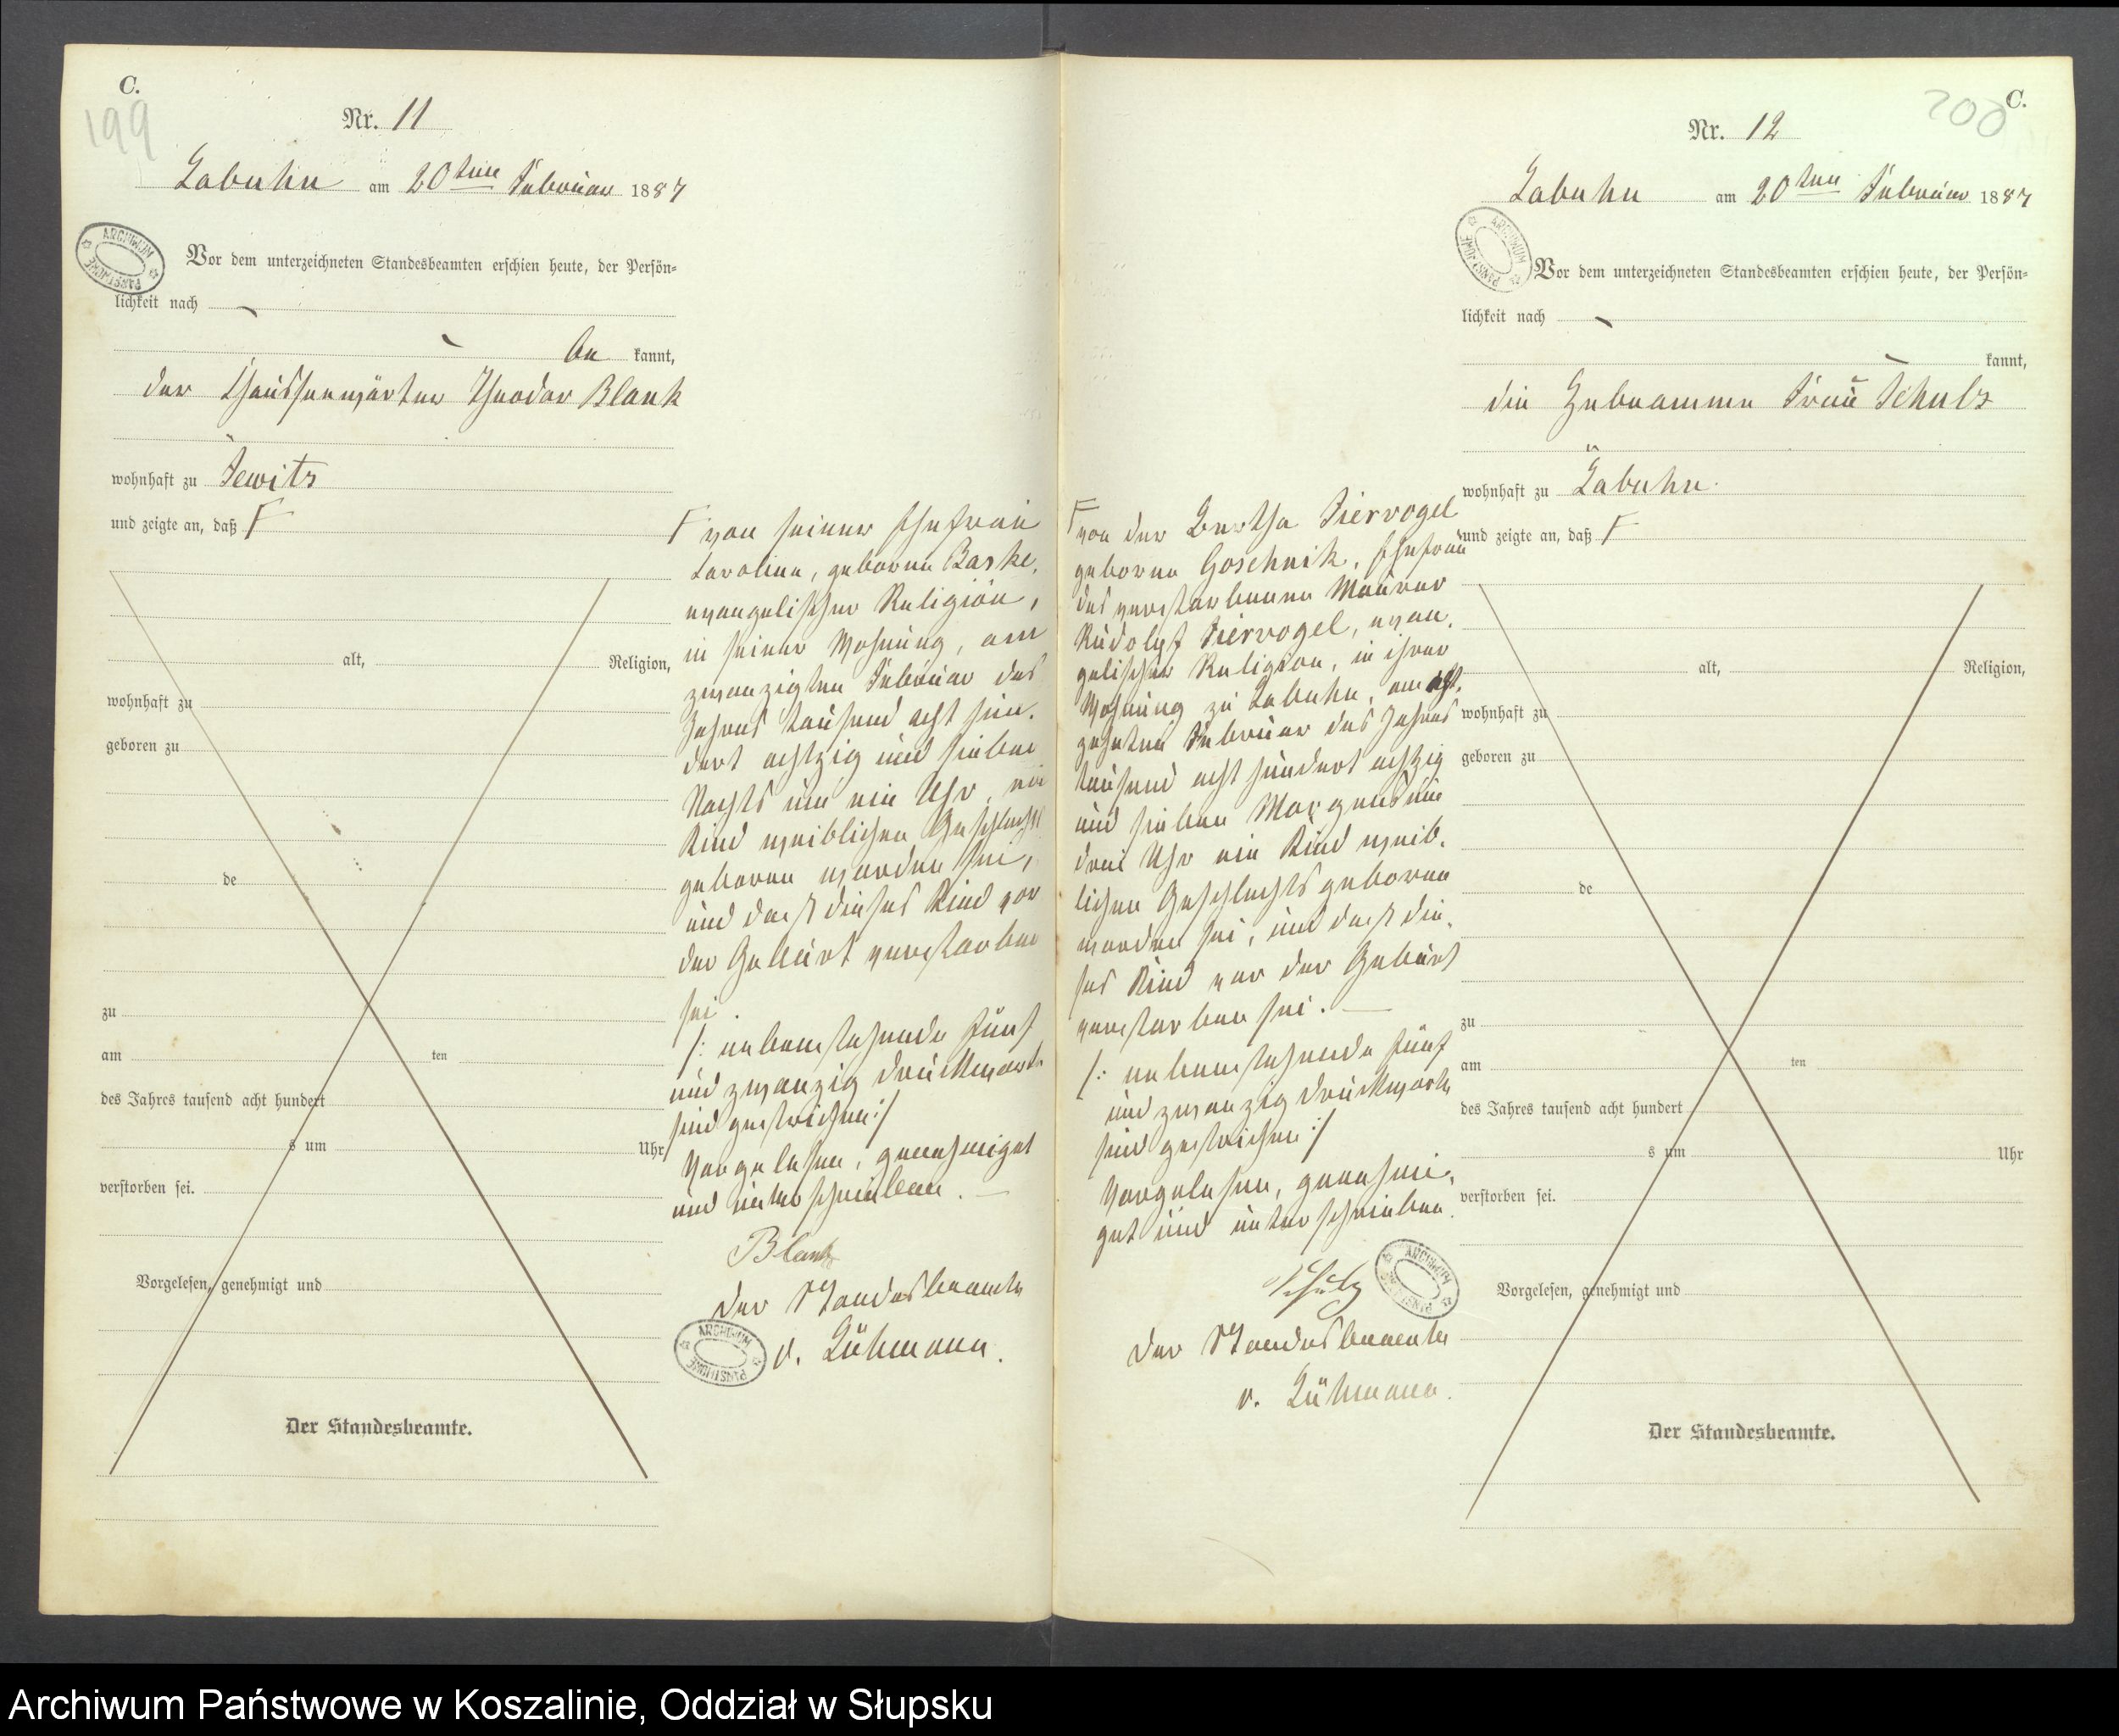 C.
199
Nr. 11
Labuhn am 20ten Februar 1887
Vor dem unterzeichneten Standesbeamten erschien heute, der Persön-
lichkeit nach
be kannt,
der Chausseewärter Theodor Blank
wohnhaft zu Jewitz
und zeigte an, daß
alt, Religion,
wohnhaft zu
geboren zu
de
zu
am ten
des Jahres tausend acht hundert
s um Uhr
verstorben sei.
Vorgelesen, genehmigt und
Der Standesbeamte.
von seiner Ehefrau
Caroline, geborne Baske,
evangelischer Religion,
in seiner Wohnung, am
zwanzigten Februar des
Jahres tausend acht hun.
dert achtzig und sieben
Nachts um ein Uhr, ein
Kind weiblichen Geschlechts
geboren worden sei,
und daß dieses Kind vor
der Geburt verstorben
sei.
/: nebenstehende fünf
und zwanzig Druckworte
sind gestrichen :/
Vorgelesen, genehmiget
und unterschrieben. —
Blank
Der Standesbeamte
v. Lühmann.
ARCHIWUM PAŃSTWOWE
C.
200
Nr. 12
Labuhn am 20ten Februar 1887
Vor dem unterzeichneten Standesbeamten erschien heute, der Persön-
lichkeit nach
kannt,
die Hebeamme Frau Schulz
wohnhaft zu Labuhn.
und zeigte an, daß
von der Bertha Fiervogel
geborne Goschnik, Ehefrau
des verstorbenen Maurer
Rudolph Fiervogel, evan.
gelischer Religion, in ihrer
Wohnung zu Labuhn, am acht.
zehnten Februar des Jahres
tausend acht hundert achtzig
und sieben Morgens um
drei Uhr ein Kind weib.
lichen Geschlechts geboren
worden sei, und daß die.
ses Kind vor der Geburt
verstorben sei. —
/: nebenstehende fünf
und zwanzig Druckworte
sind gestrichen :/
Vorgelesen, genehmi.
get und unterschrieben.
Schulz
Der Standesbeamte
v. Lühmann.
alt, Religion,
wohnhaft zu
geboren zu
de
zu
am ten
des Jahres tausend acht hundert
s um Uhr
verstorben sei.
Vorgelesen, genehmigt und
Der Standesbeamte.
Archiwum Państwowe w Koszalinie, Oddział w Słupsku